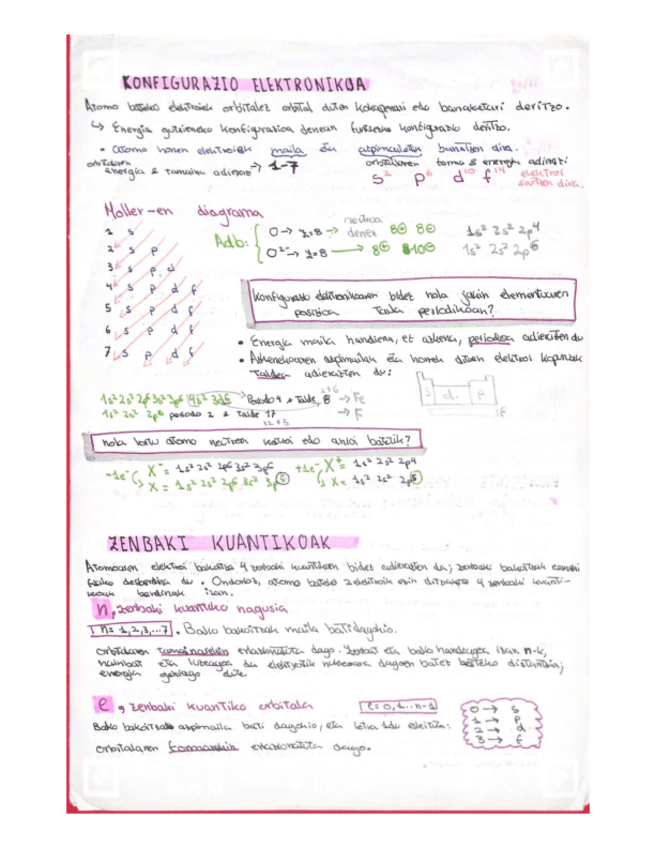 KONFIGURAZIO ELEKTRONIKOA
Atomo bateko elektroiek orbitalez orbital duten kokapenari edo banaketari deritzo.
↳ Energia gutxieneko konfigurazioa denean funtsezko konfigurazio deritzo.
• Atomo honen elektroiak maila eta azpimailetan banatzen dira.
orbitalaren energia & tamaina adierazi → 1-7
orbitalaren forma & energia adierazi
s² p⁶ d¹⁰ f¹⁴ elektroi sartzen dira.
Moller-en diagrama
1 s
2 s p
3 s p d
4 s p d f
5 s p d f
6 s p d f
7 s p d f
Adb:
O → z=8 → neutroa denez 8⊕ 8⊖ 1s² 2s² 2p⁴
O²⁻ → z=8 → 8⊕ 10⊖ 1s² 2s² 2p⁶
Konfigurazio elektronikoaren bidez nola jakin elementuaren posizioa taula periodikoan?
• Energia maila handiena, eta azkena, periodoa adierazten du
• Azkenekoaren azpimailak eta horrek dituen elektroi kopuruak taldea adierazten du:
1s² 2s² 2p6 3s² 3p6 4s² 3d6 Periodo 4 & Talde 8 → Fe
2+6
1s² 2s² 2p⁵ periodo 2 & Talde 17 → F
12+5
s d p
f
nola lortu atomo neutroa katioi edo anioi batetik?
-1e⁻ X⁻ = 1s² 2s² 2p6 3s² 3p6
↳ X = 1s² 2s² 2p6 3s² 3p⑤
+1e⁻ X⁺ = 1s² 2s² 2p4
↳ X = 1s² 2s² 2p⑤
ZENBAKI KUANTIKOAK
Atomoaren elektroi bakoitza 4 zenbaki kuantikoen bidez adierazten da; zenbaki bakoitzak esanahi
fisiko desberdina du. Ondorioz, atomo bateko 2 elektroik ezin dituzte 4 zenbaki kuanti-
koak berdinak izan.
n, zenbaki kuantiko nagusia
n = 1, 2, 3, ...7 • Balio bakoitzak maila bati dagokio.
orbitalaren tamainarekin erlazionatuta dago. Zenbat eta balio handiagoa izan n-k,
hainbat eta luzeagoa da elektroitik nukleora dagoen batez besteko distantzia;
energia gehiago dute.
l, zenbaki kuantiko orbitala
l = 0, 1, ... n-1
Balio bakoitzak azpimaila bati dagokio, eta letra bat esleitu:
orbitalaren formarekin erlazionatuta dago.
0 → s
1 → p
2 → d
3 → f